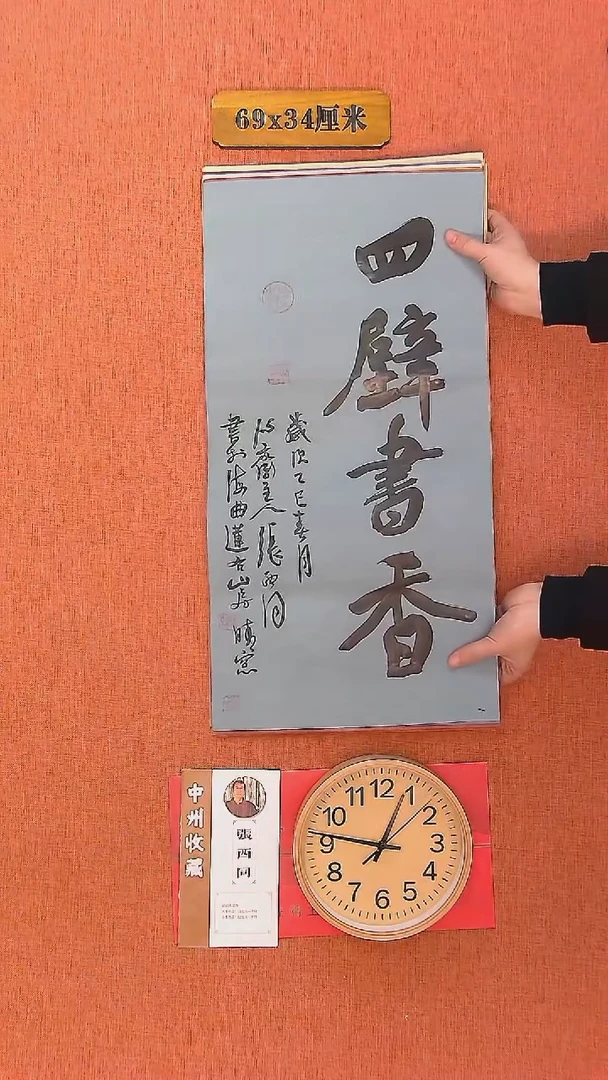 69x34厘米
四壁書香
歲次乙巳春月
張西同
書於海曲蓮右山房 晴窓
中州收藏
張西同
12
1
2
3
4
5
6
7
8
9
10
11